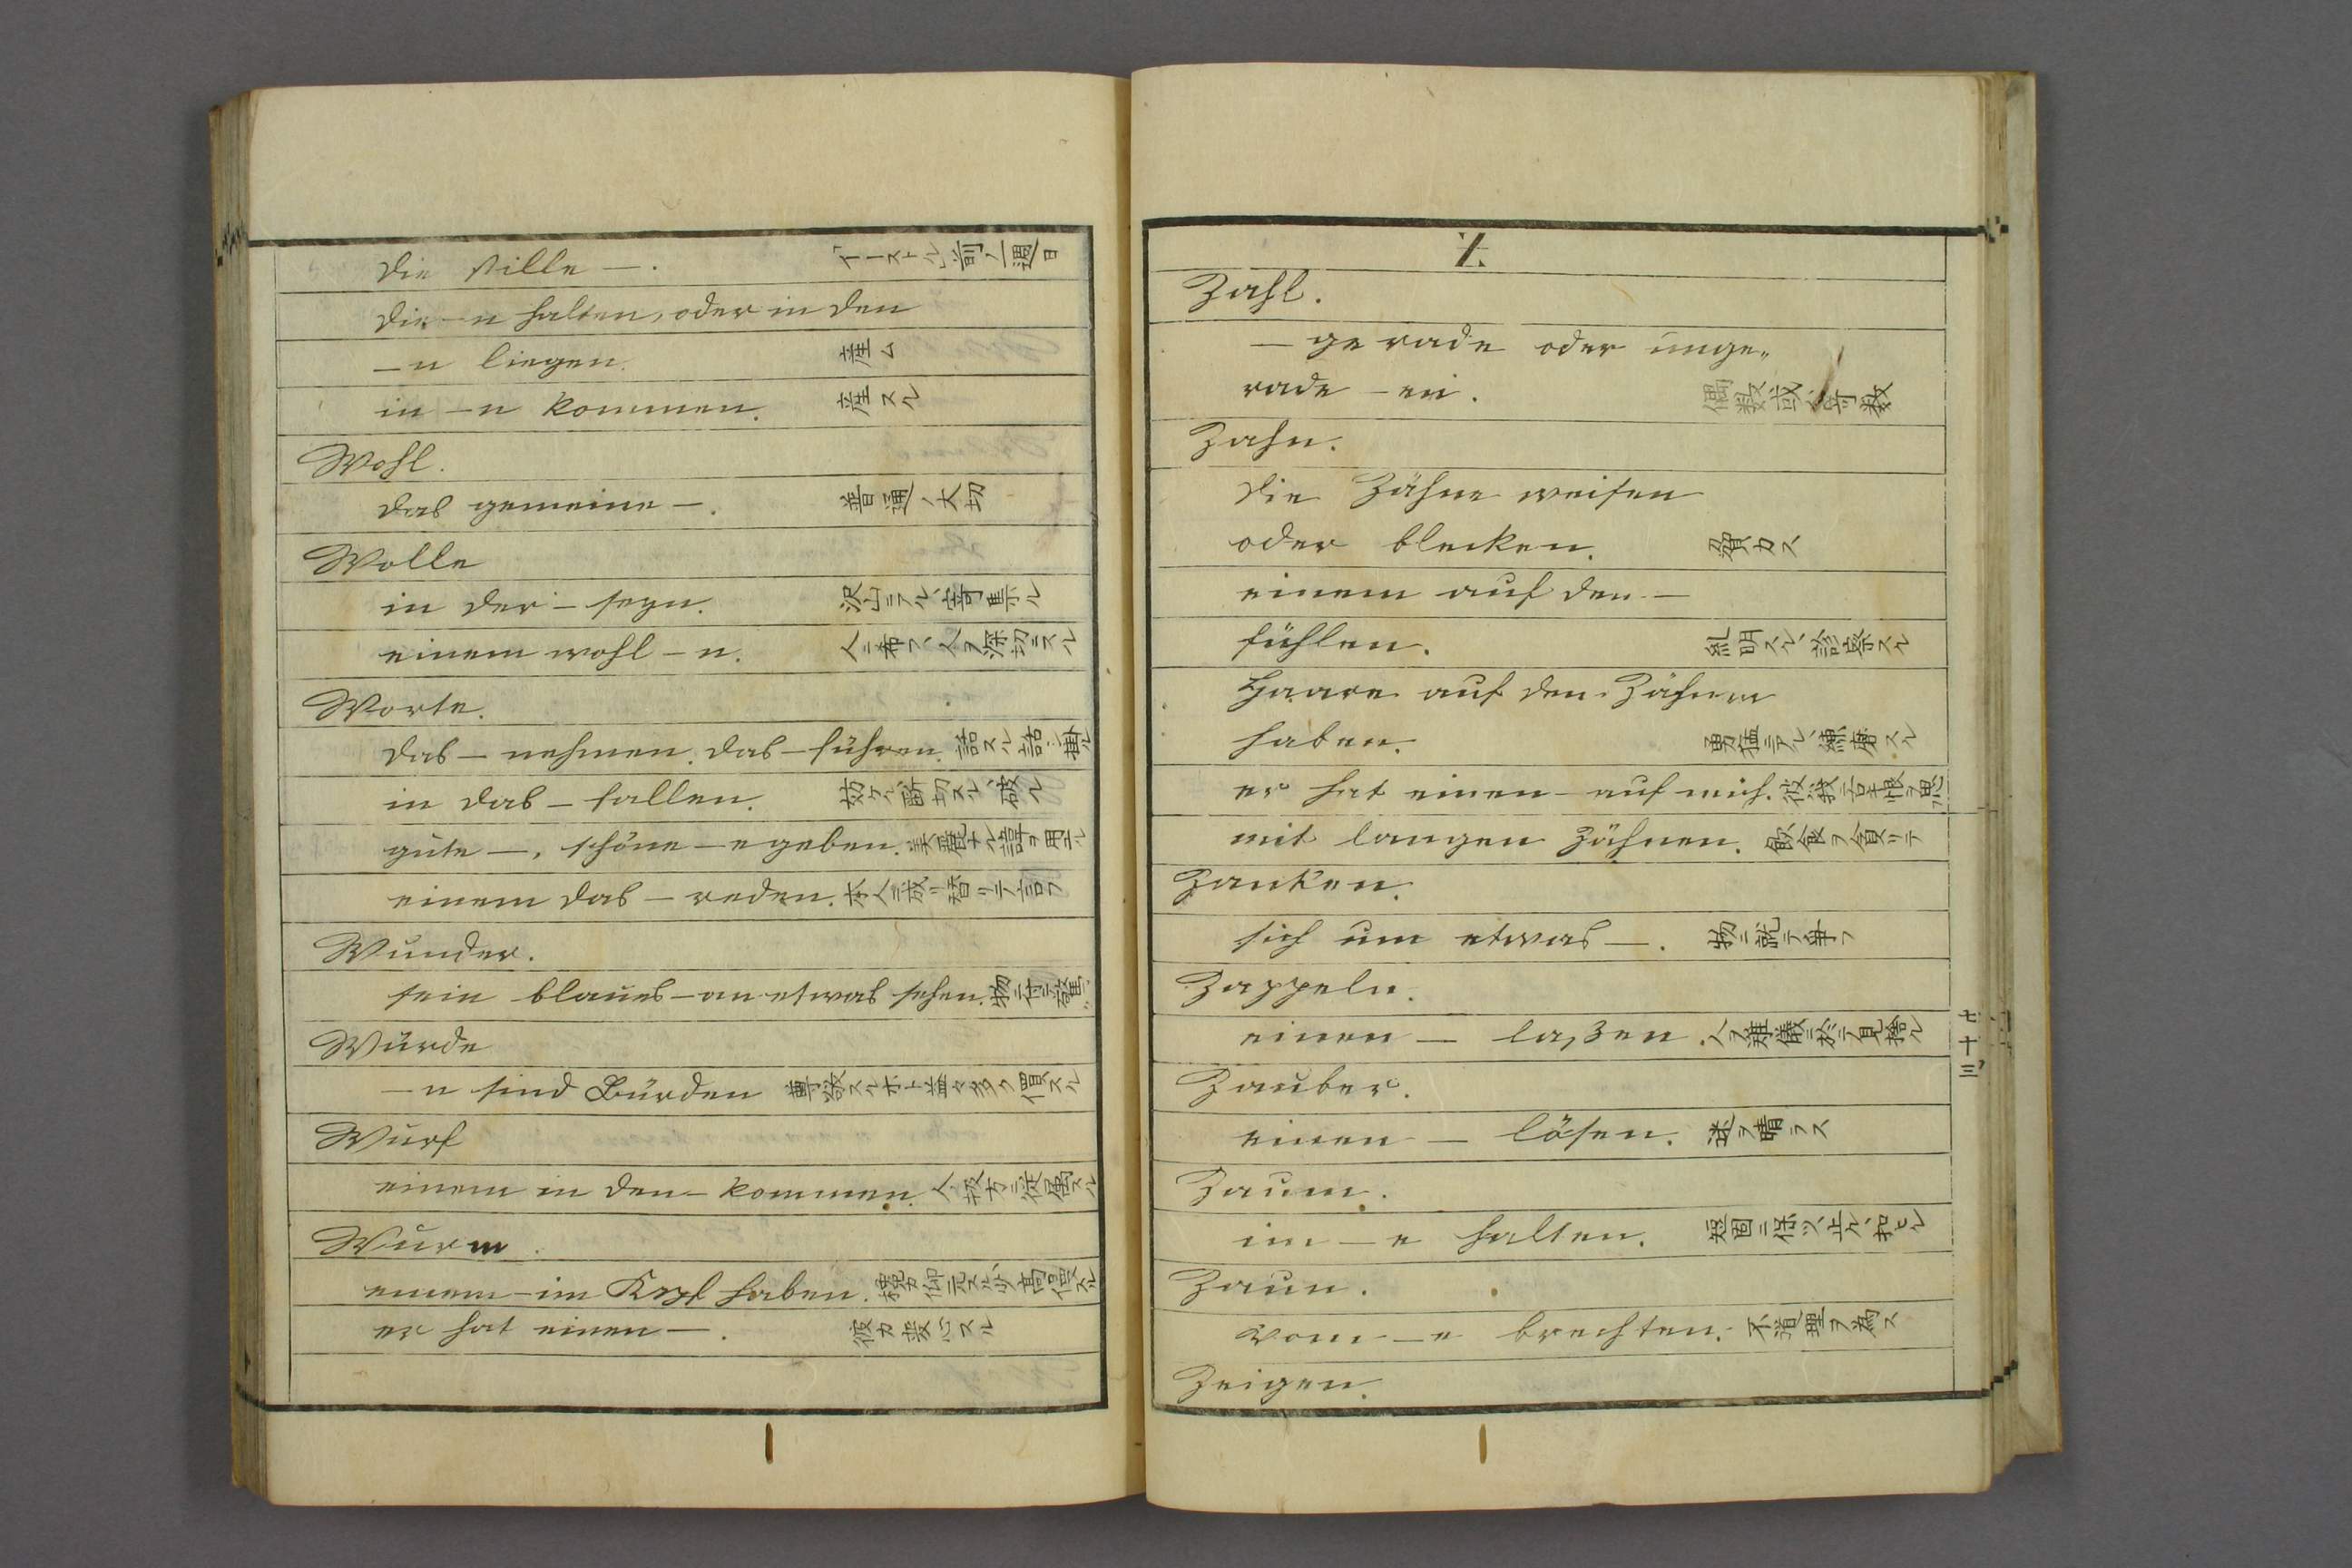 die stille —. イーストル前ノ一週日
die —n halten, oder in den
—n liegen. 産ム
in —n kommen. 産スル
Wohl.
das gemeine —. 普通ノ大切
Wolle
in der — seyn.
einem wohl —n.
Worte.
das — nehmen. das — führen.
in das — fallen.
gute —, schöne —e geben. 美麗ナル辞ヲ用ル
einem das — reden. 本人ニ成リ替リテ言フ
Wunder.
sein blaues — an etwas sehen. 物ニ付テ驚ク
Würde
—n sind Bürden 尊敬スルホト益々多ク償スル
Wurf
einem in den — kommen.
Wurm.
einem — im Kopf haben.
er hat einen —.
Z.
Zahl.
— gerade oder unge„
rade —en. 偶数或ハ奇数
Zahn.
die Zähne weisen
oder blecken.
einem auf den —
fühlen. 糺明スル、診察スル
Haare auf den Zähnen
haben. 勇猛テアル、練磨スル
er hat einen — auf mich.
mit langen Zähnen. 飲食ヲ貪リテ
Zanken.
sich um etwas —. 物ニ就テ争フ
Zappeln.
einen — laßen. 人ヲ難儀ニ於テ見捨ル
Zauber.
einen — lösen. 迷ヲ晴ラス
Zaum.
im —e halten.
Zaun.
vom —e brechten. 不道理ヲ為ス
Zeigen.
七十三